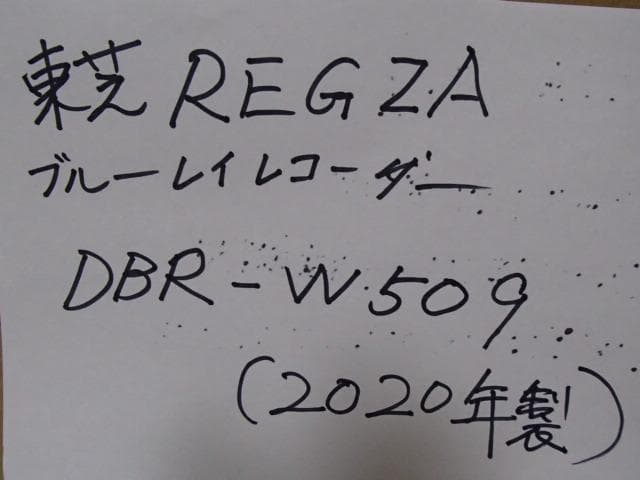 東芝 REGZA
ブルーレイレコーダー
DBR-W509
(2020年製)